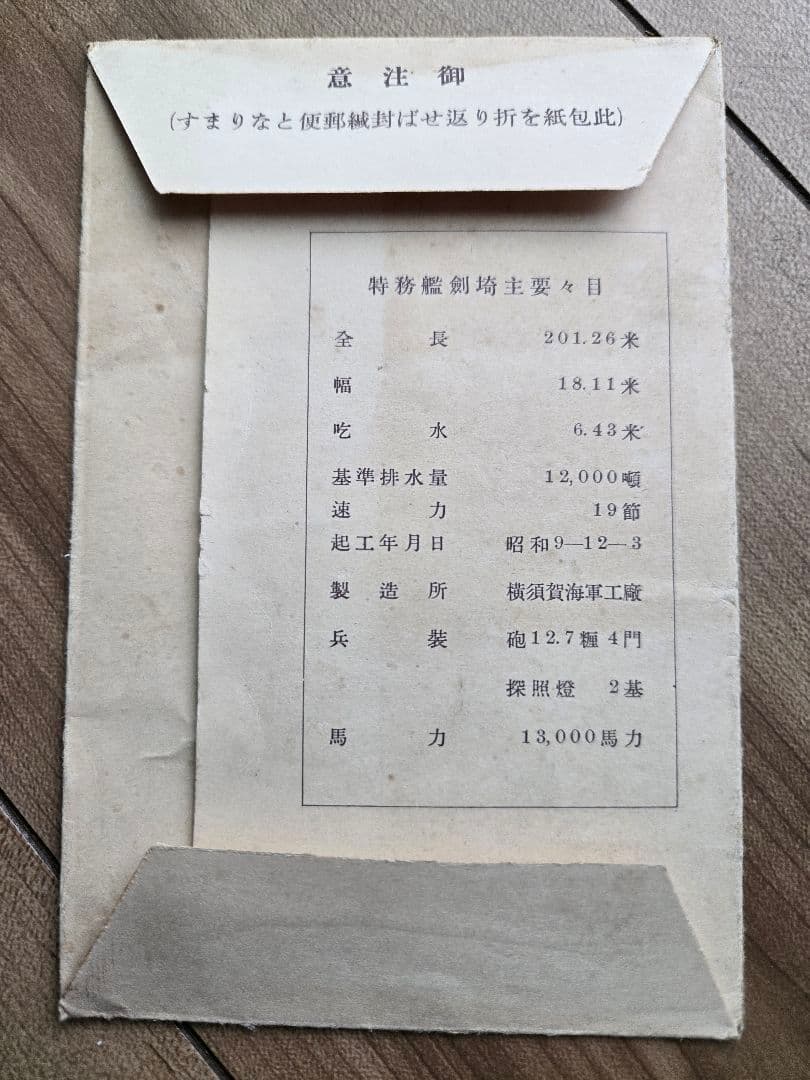 御注意
(此包紙を折り返せば封緘郵便となります)
特務艦劍埼主要々目
全長 201.26米
幅 18.11米
吃水 6.43米
基準排水量 12,000噸
速力 19節
起工年月日 昭和9—12—3
製造所 横須賀海軍工廠
兵裝 砲12.7糎4門
探照燈 2基
馬力 13,000馬力